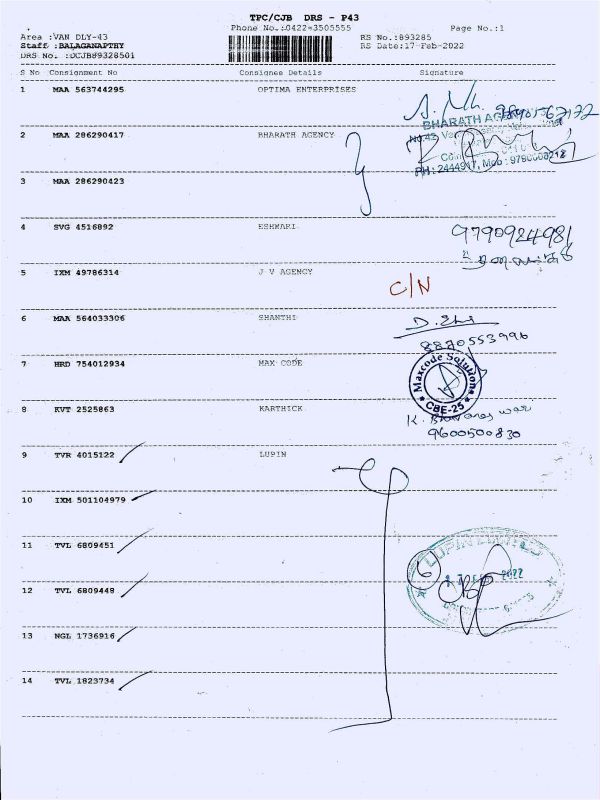 TPC/CJB DRS - P43
Phone No.:0422-3505555 Page No.:1
Area :VAN DLY-43 RS No.:893285
Staff :BALAGANAPTHY RS Date:17-Feb-2022
DRS No. :DCJB89328501
S No Consignment No Consignee Details Signature
1 MAA 563744295 OPTIMA ENTERPRISES
BHARATH AGENCY
2 MAA 286290417 BHARATH AGENCY
3 MAA 286290423
4 SVG 4516892 ESHWARI
9790924981
5 IXM 49786314 J V AGENCY
C/N
6 MAA 564033306 SHANTHI
8870553996
7 HRD 754012934 MAX CODE
Maxcode Solutions
CBE-25
8 KVT 2525863 KARTHICK
9600500830
9 TVR 4015122 LUPIN
10 IXM 501104979
11 TVL 6809451
LUPIN LIMITED
6
2022
12 TVL 6809448
13 NGL 1736916
14 TVL 1823734